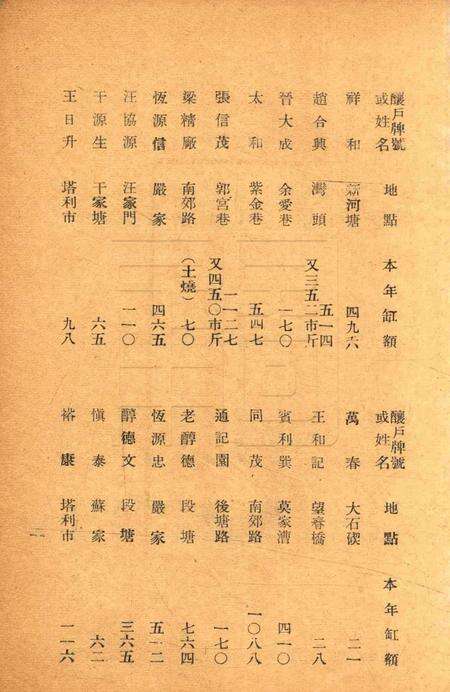 釀戶牌號或姓名 地點 本年缸額
祥和 新河塘 四九六
趙合興 灣頭 五一四 又三五二市斤
晉大成 余愛巷 一七〇
太和 紫金巷 五四七
張信茂 郭宮巷 一一二七 又四五〇市斤
梁精廠 南郊路 (土燒) 七〇
恆源信 嚴家 四六五
汪協源 汪家門 一一〇
干源生 干家塘 六五
王日升 塔利市 九八
釀戶牌號或姓名 地點 本年缸額
萬春 大石碶 二一
王和記 望春橋 二八
賓利巽 莫家漕 四一〇
同茂 南郊路 一〇八八
通記園 後塘路 一七〇
老醇德 段塘 七六四
恆源忠 嚴家 五一二
醇德文 段塘 三六五
愼泰 蘇家 六二
裕康 塔利市 二一六